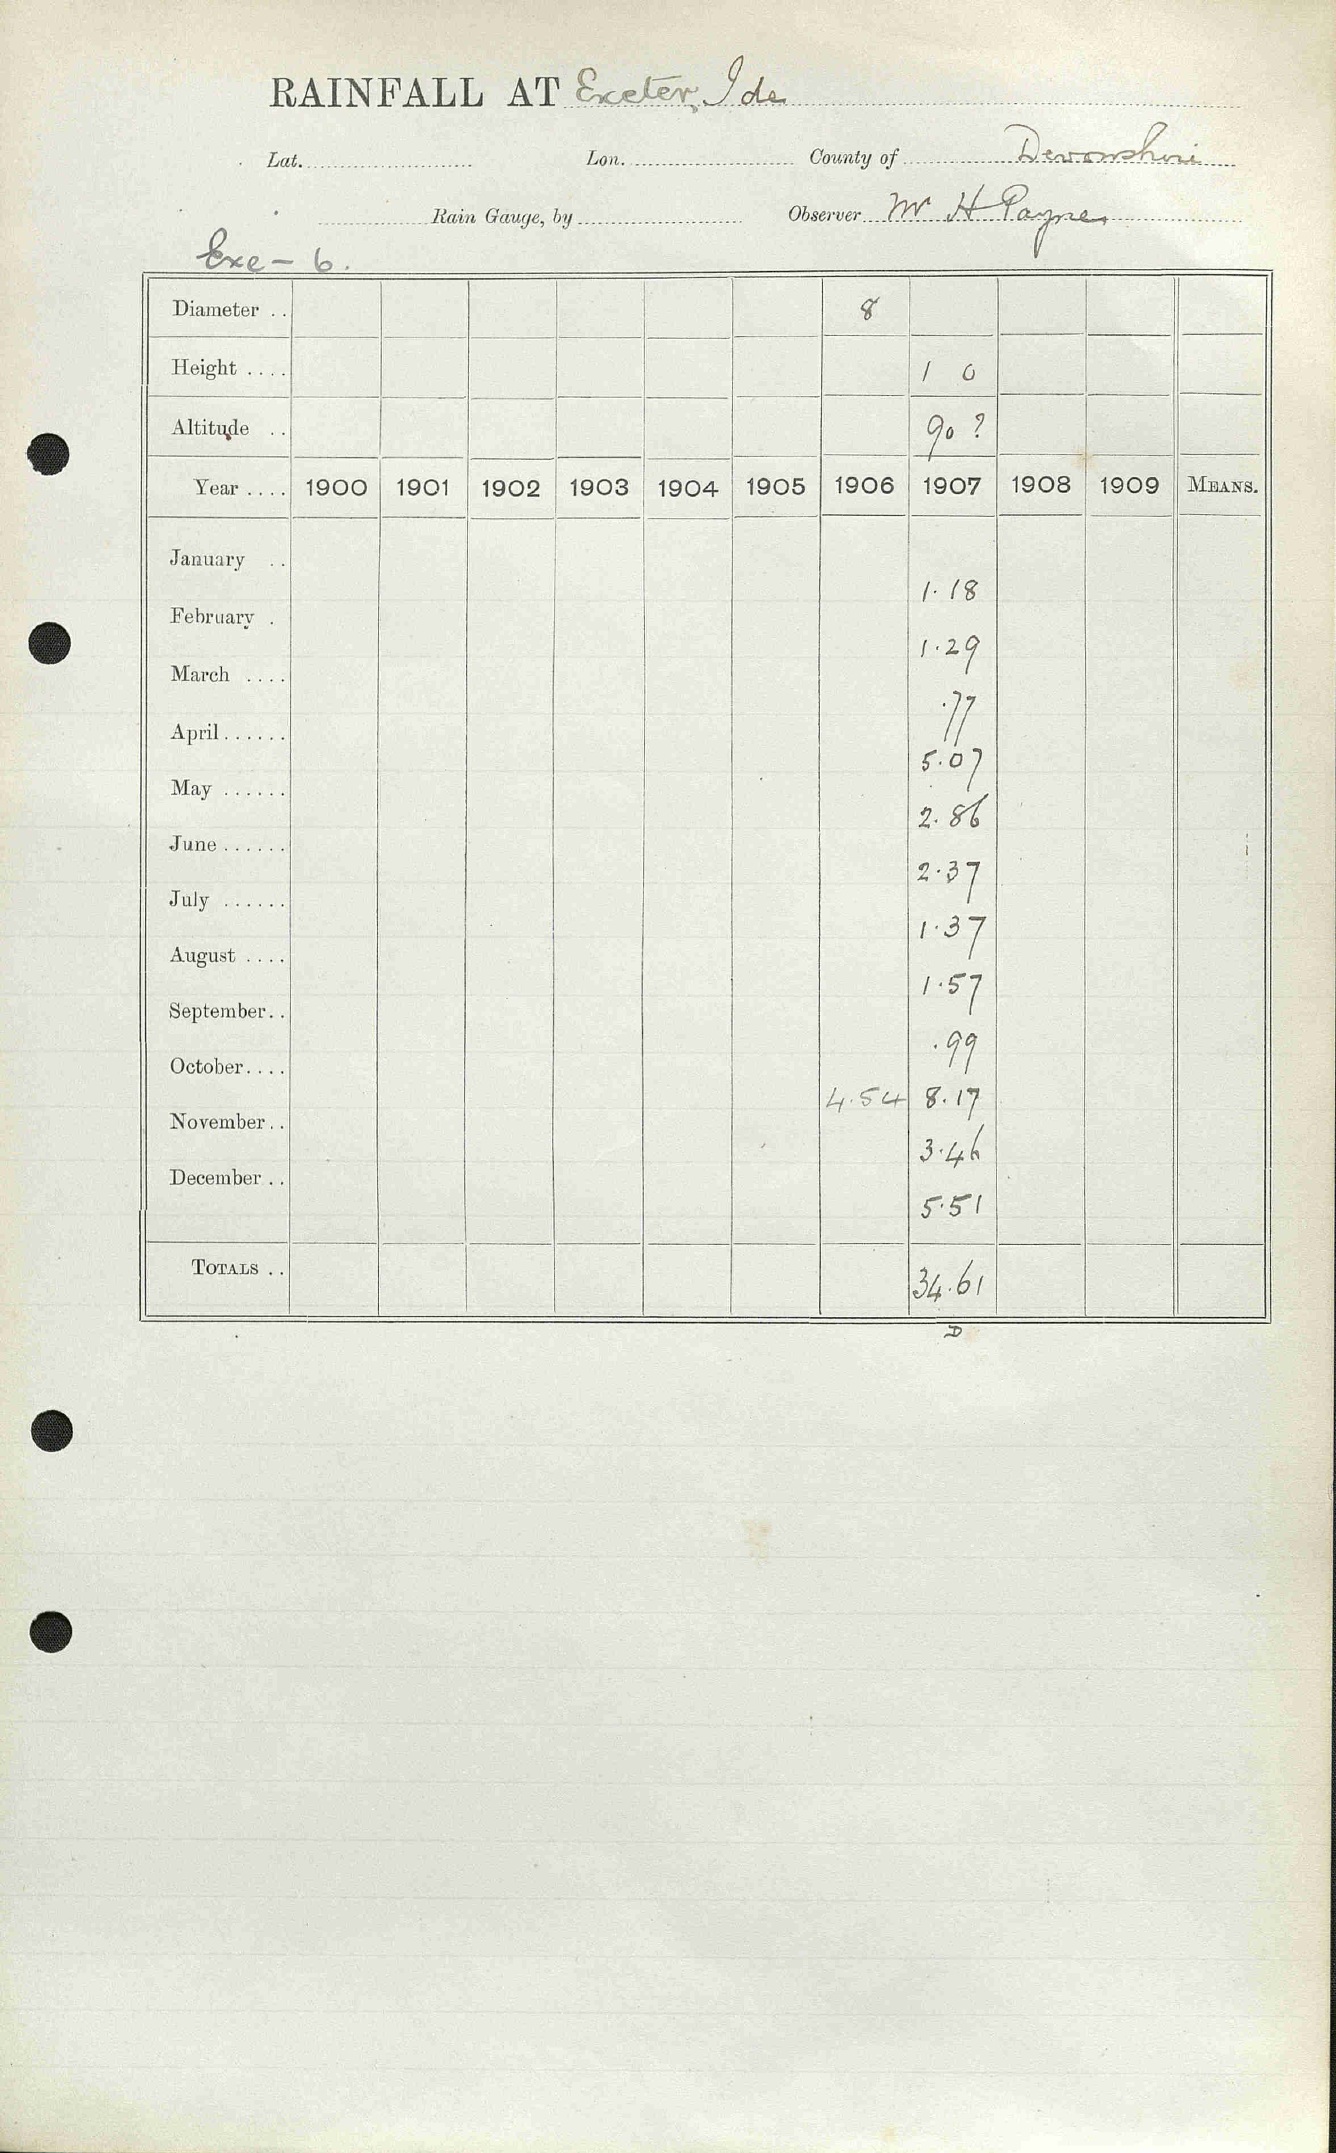 RAINFALL AT Exeter, Ide
Lat. Lon. County of Devonshire
Rain Gauge, by Observer Mr H Payne
Exe - 6.
Diameter .. 8
Height .... 1 0
Altitude .. 90 ?
Year .... 1900 1901 1902 1903 1904 1905 1906 1907 1908 1909 MEANS.
January .. 1.18
February . 1.29
March .... .77
April...... 5.07
May ...... 2.86
June...... 2.37
July ...... 1.37
August .... 1.57
September.. .99
October.... 4.54 8.17
November.. 3.46
December.. 5.51
TOTALS .. 34.61
D